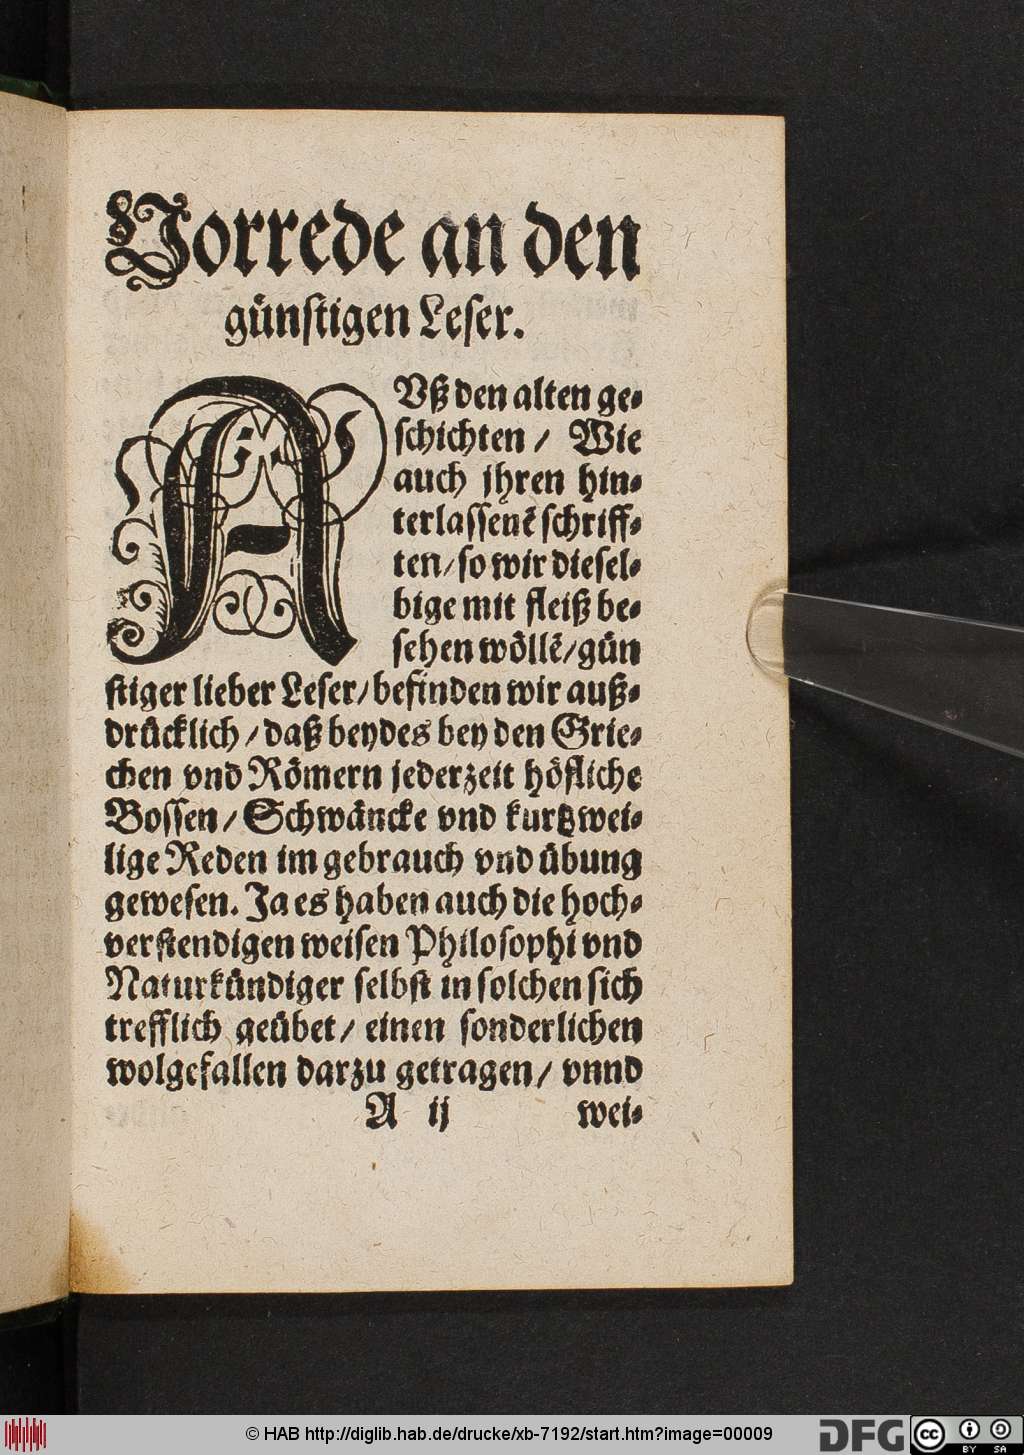 Vorrede an den
günstigen Leser.
AVß den alten ge-
schichten / Wie
auch jhren hin-
terlassenẽ schriff-
ten / so wir diesel-
bige mit fleiß be-
sehen wöllẽ / gün
stiger lieber Leser / befinden wir auß-
drücklich / daß beydes bey den Grie-
chen vnd Römern jederzeit höfliche
Bossen / Schwäncke vnd kurtzwei-
lige Reden im gebrauch vnd übung
gewesen. Ja es haben auch die hoch-
verstendigen weisen Philosophi vnd
Naturkündiger selbst in solchen sich
trefflich geübet / einen sonderlichen
wolgefallen darzu getragen / vnnd
A ij wei-
© HAB http://diglib.hab.de/drucke/xb-7192/start.htm?image=00009
DFG
cc BY SA